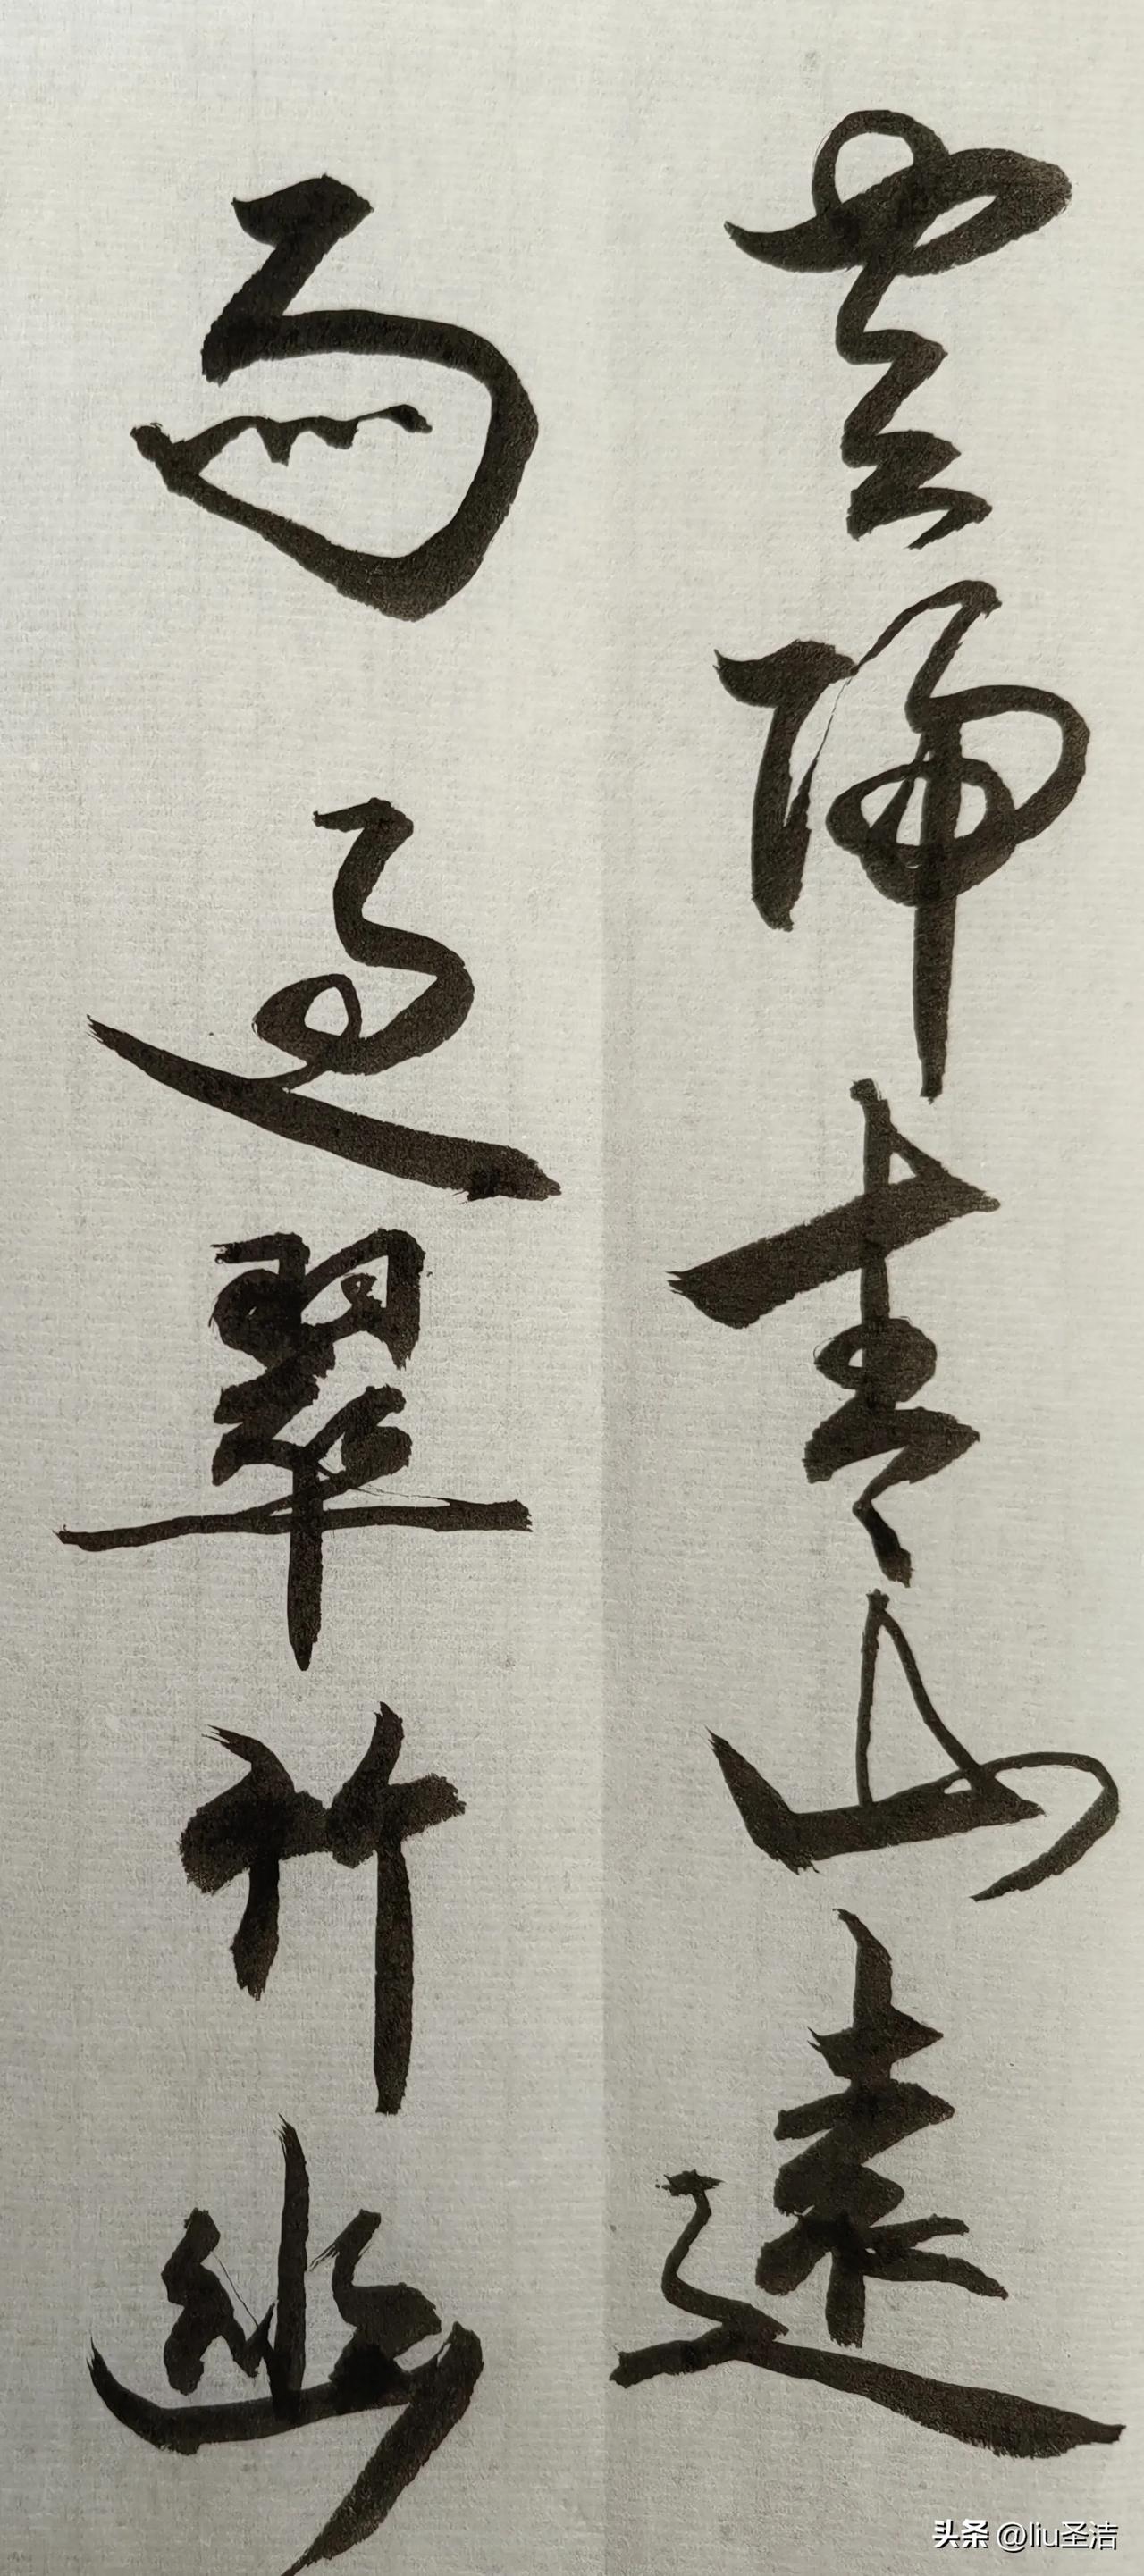 雲隔青山遠
雨過翠竹幽
头条 @liu圣洁